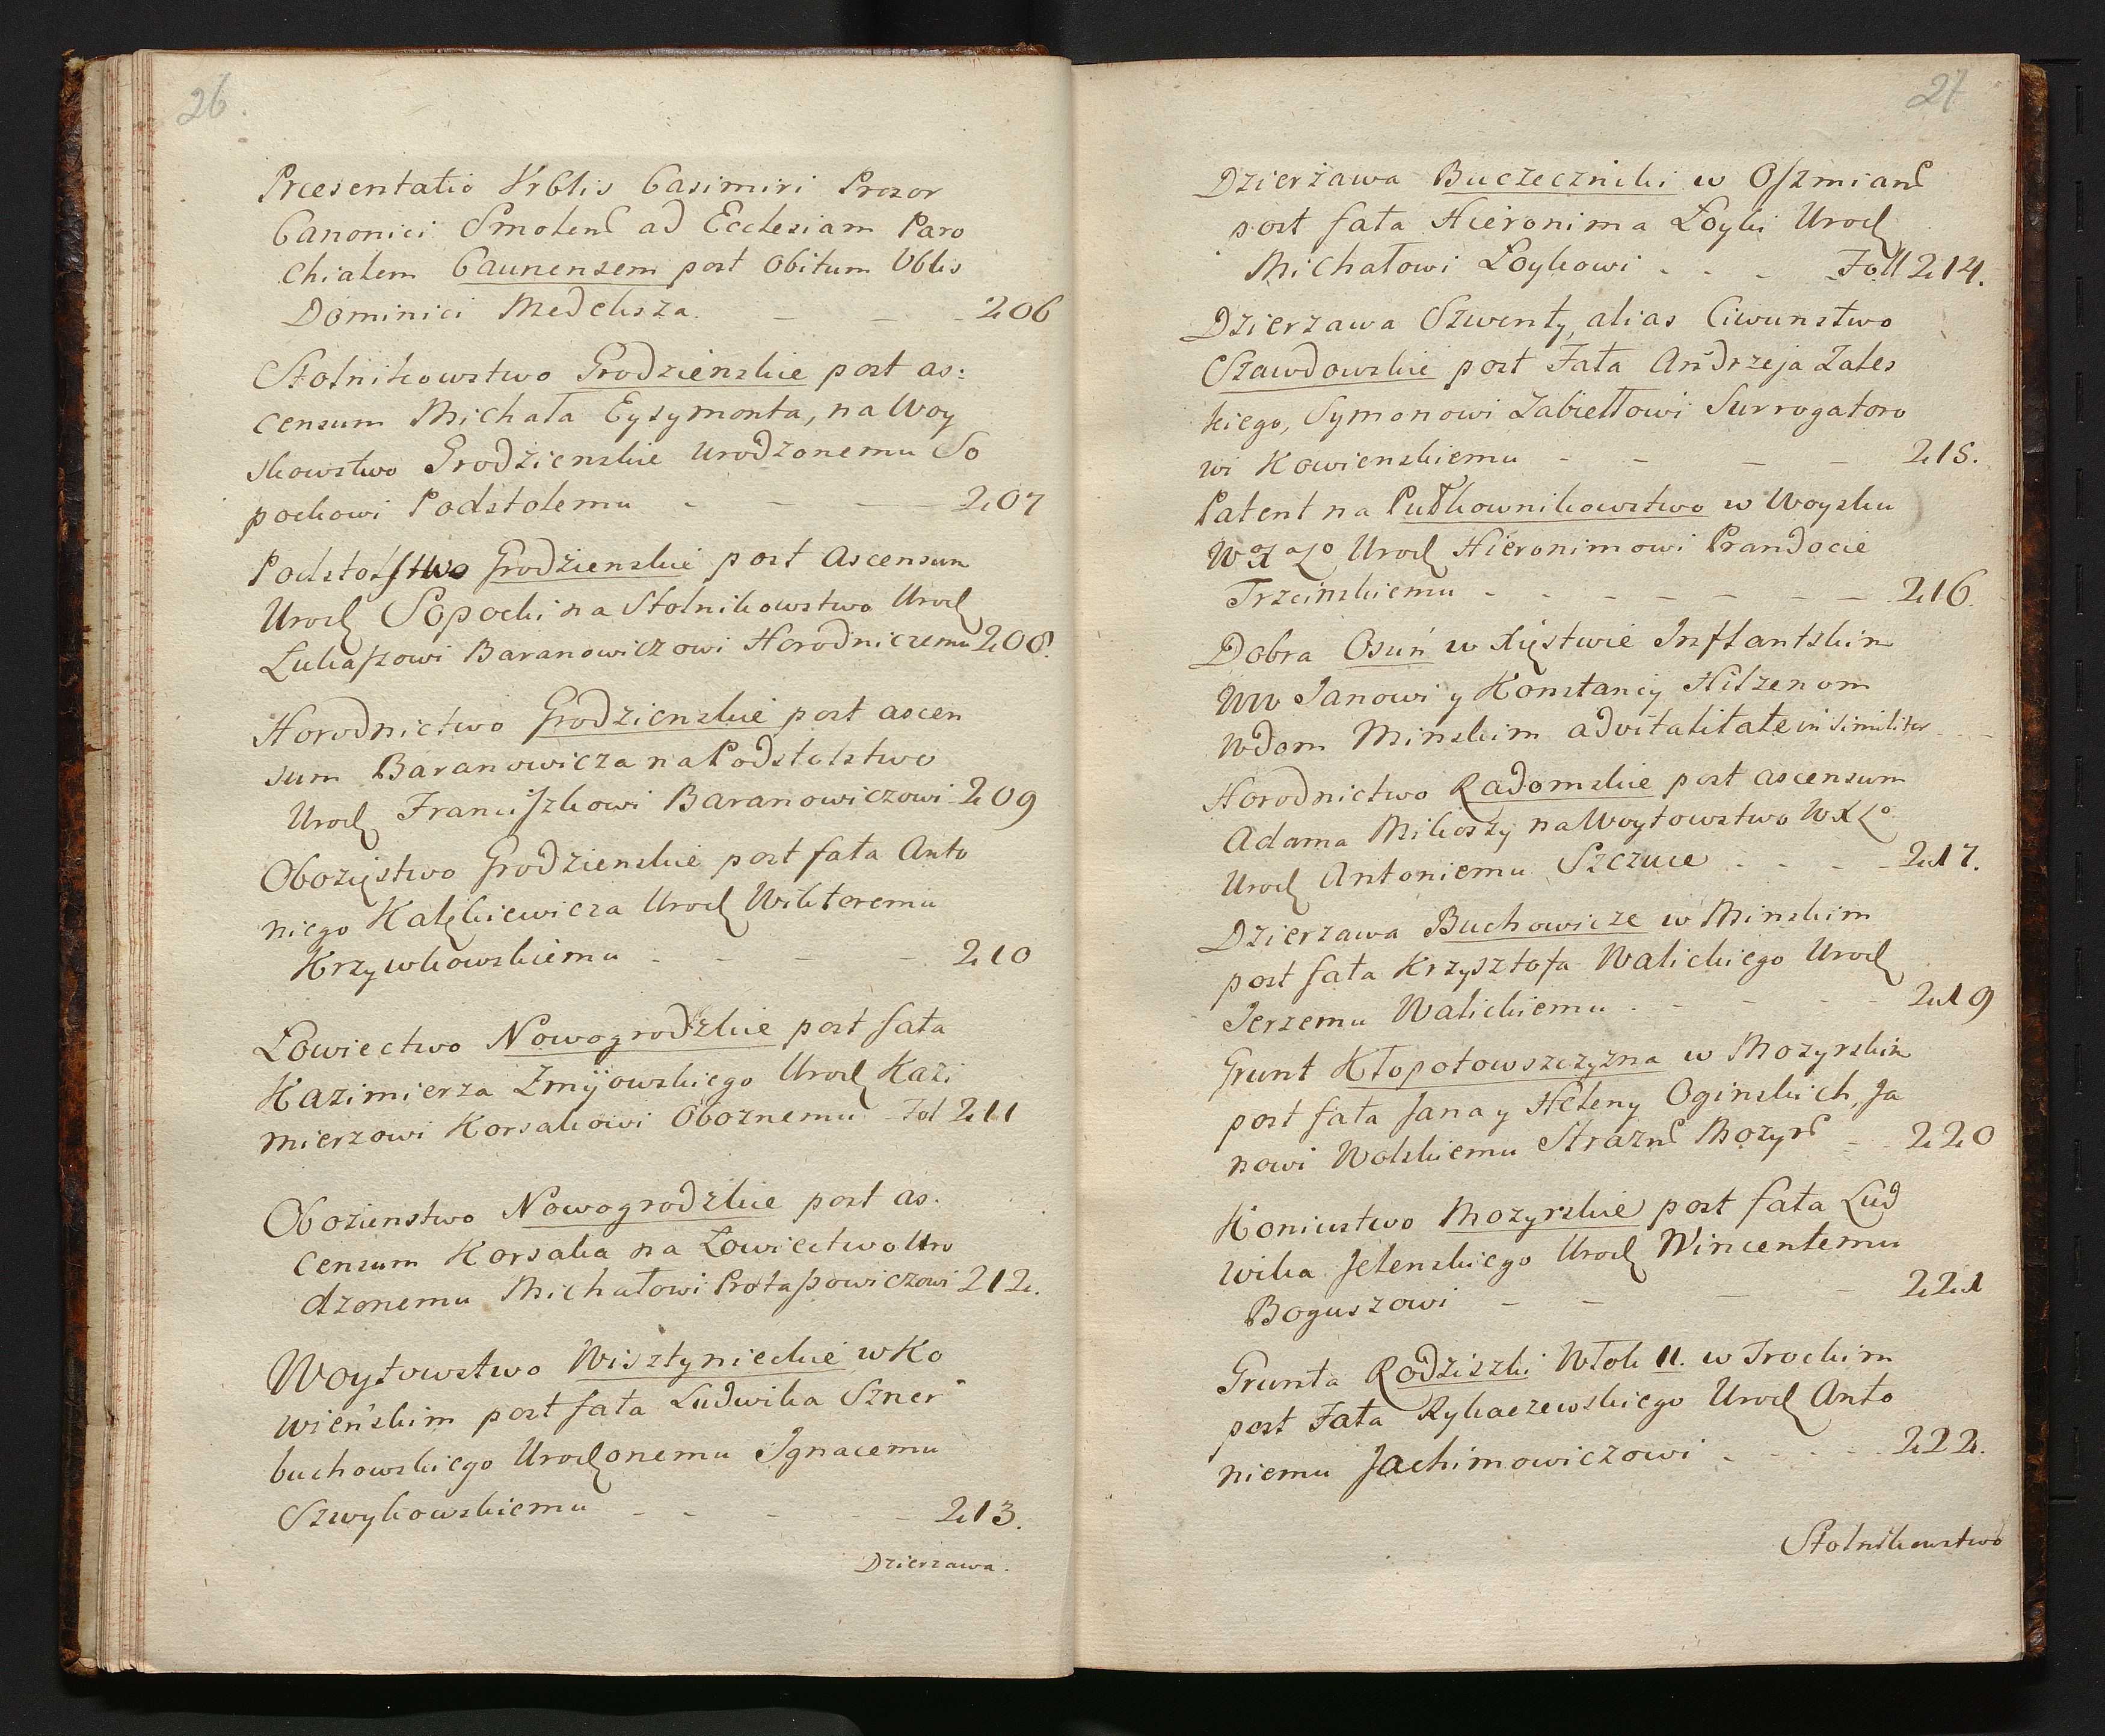 26.
Præsentatio Vrblis Casimiri Prozor
Canonici Smolens ad Ecclesiam Paro
chialem Caunensem post Obitum Vblis
Dominici Medeksza. — — — 206
Stolnikowstwo Grodzienskie post as:
censum Michała Eysymonta, na Woy
skowstwo Grodzienskie urodzonemu So
poćkowi Podstolemu - — — — 207
Podstolstwo Grodzienskie post Ascensum
Urod Sopocki na Stolnikowstwo Urod
Lukaszowi Baranowiczowi Horodniczemu 208.
Horodnictwo Grodzienskie post ascen
sum Baranowicza na Podstolstwo
Urod Franciszkowi Baranowiczowi 209
Obozięstwo Grodzienskie post fata Anto
niego Kalękiewicza Urod Wiktoremu
Krzywkowskiemu - - - - 210
Łowiectwo Nowogrodzkie post fata
Kazimierza Żmijowskiego Urod Kazi
mierzowi Korsakowi Oboznemu Fol 211
Obozienstwo Nowogrodzkie post as.
censum Korsaka na Łowiectwo Uro
dzonemu Michałowi Protaßowiczowi 212.
Woytowstwo Wisztynieckie w Ko
wieńskim post fata Ludwika Szner
buchowskiego Urodzonemu Ignacemu
Szwykowskiemu - - - - 213.
Dzierzawa.
27
Dzierżawa Buczeczniki w Oszmians
post fata Hieronima Łoyki Urod
Michałowi Łoykowi - - - Foll 214.
Dzierzawa Szwenty, alias Ciwunstwo
Szawdowskie post Fata Andrzeja Zales
kiego, Symonowi Zabiełłowi Surrogatoro
wi Kowienskiemu - - - - 215.
Patent na Pułkownikowstwo w Woysku
W X L Urod Hieronimowi Prandocie
Trzcinskiemu - - - - - - - 216.
Dobra Osuń w Xięstwie Inflantskim
WW Janowi y Konstancij Hilzenom
Wdom Minskim advitalitatem similiter - -
Horodnictwo Radomskie post ascensum
Adama Mikoszy na Woytowstwo W X Lo
Urod Antoniemu Szczuce - - - - 217.
Dzierzawa Buchowicze w Minskim
post fata Krzysztofa Walickiego Urod
Jerzemu Walickiemu - - - - - 219
Grunt Kłopotowszczyzna w Mozyrskim
post fata Jana y Heleny Oginskich, Ja
nowi Wolskiemu Strazns Mozyrs - 220
Koniustwo Mozyrskie post fata Lud
wika Jelenskiego Urod Wincentemu
Boguszowi - - - - 221
Grunta Rodziszki Włok 11. w Trockim
post Fata Rykaczewskiego Urod Anto
niemu Jachimowiczowi - - - - 222.
Stolnikowstwo